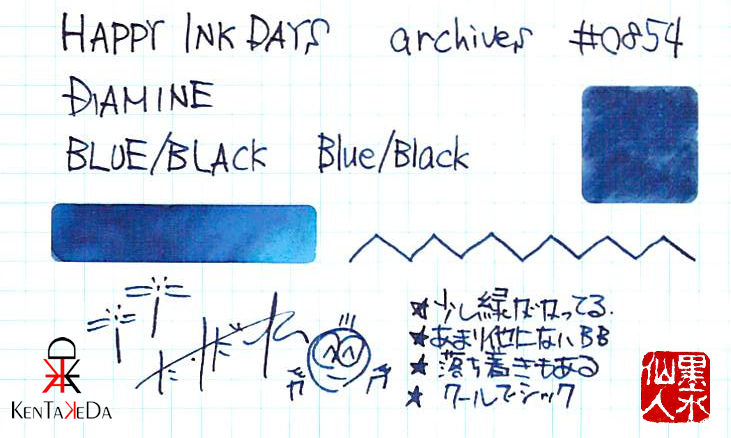 HAPPY INK DAYS archives #0854
DIAMINE
BLUE/BLACK Blue/Black
★少し緑がかってる.
★あまり他にないBB
★落ち着きもある
★クールでシック
KENTAKEDA
墨水仙人